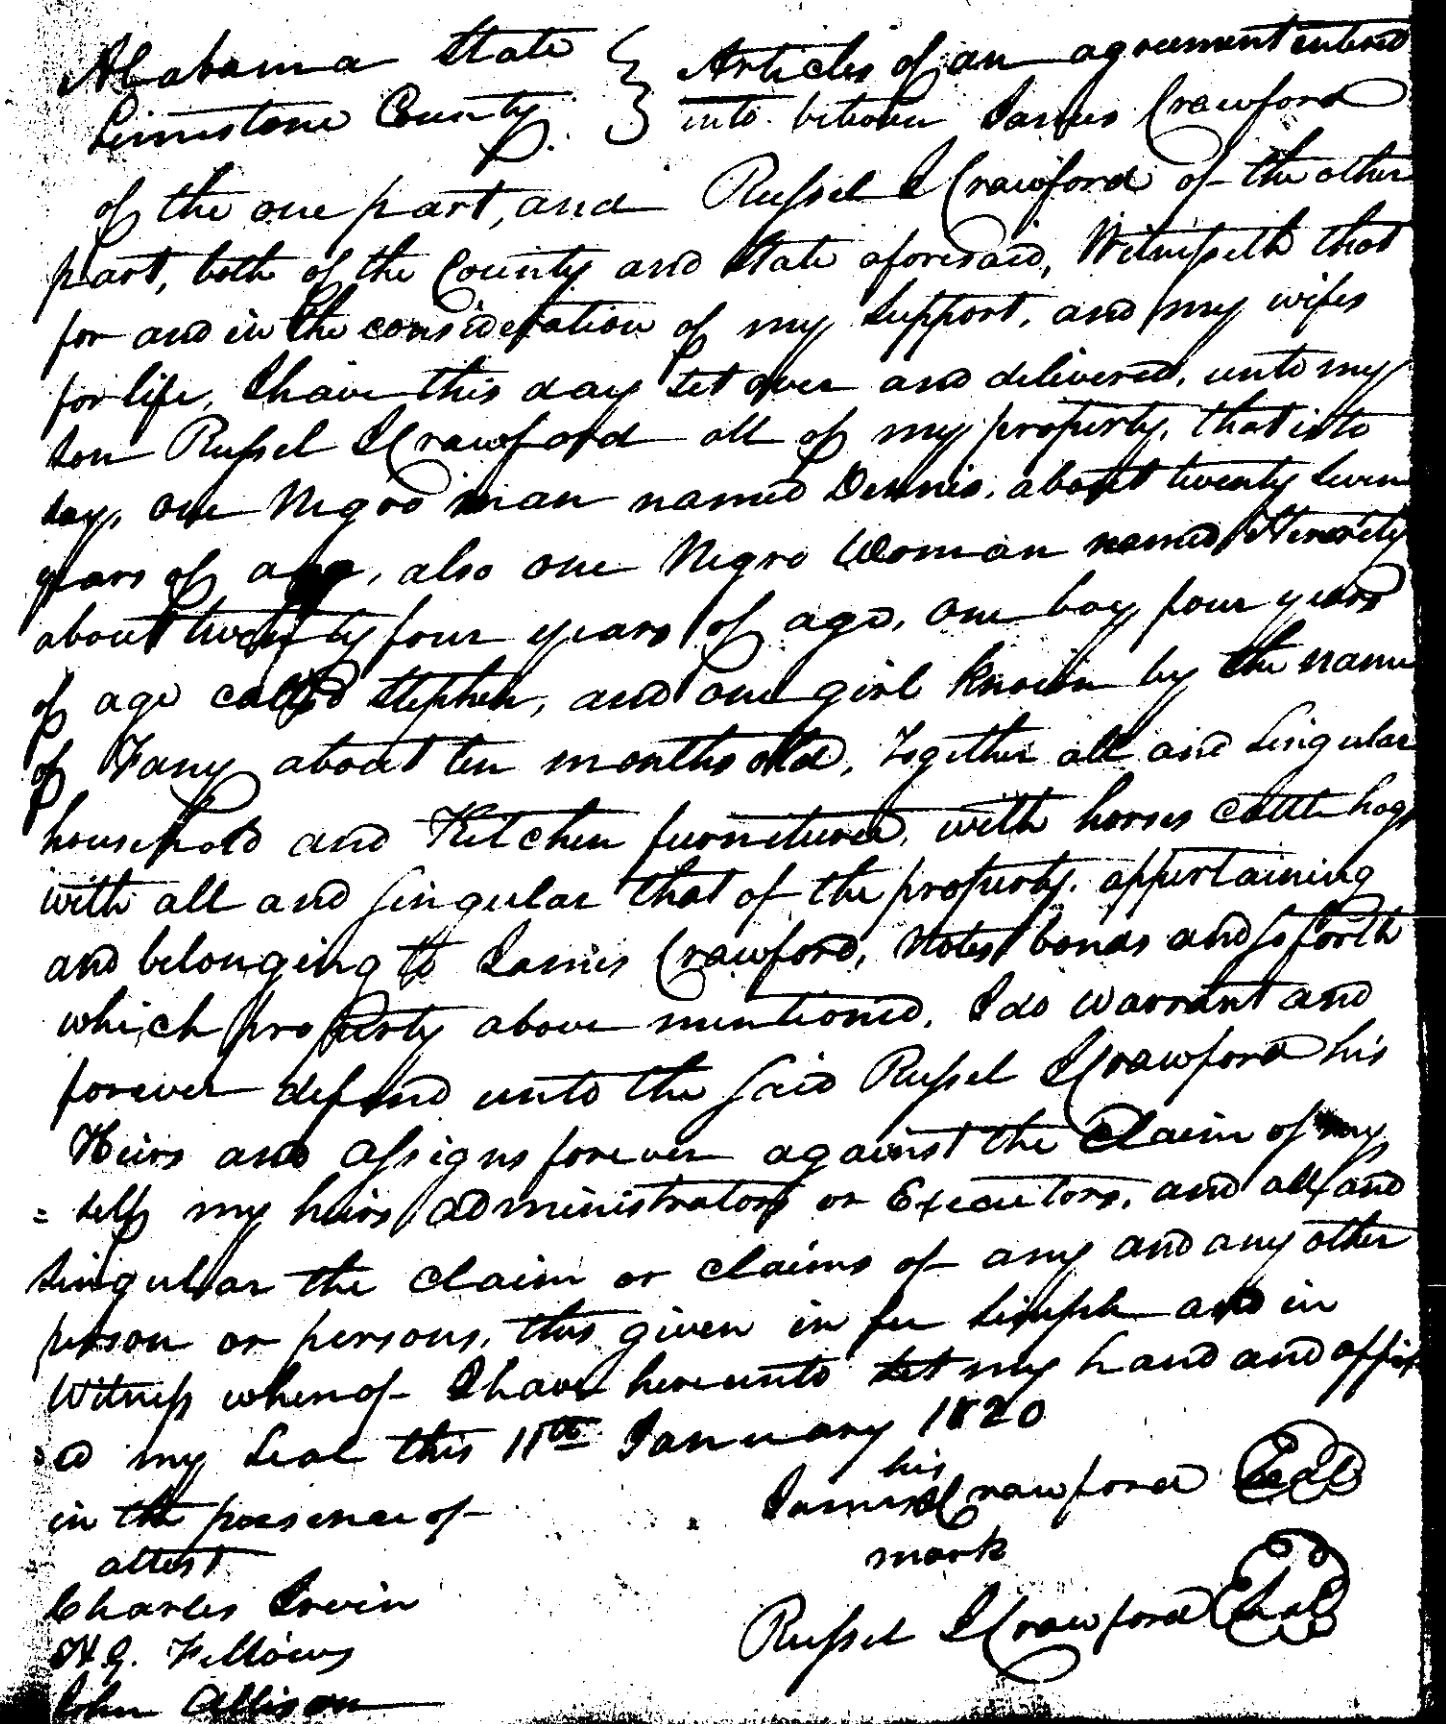 Alabama State } Articles of an agreement entered
Limestone County } into between James Crawford
of the one part, and Russel J Crawford of the other
part, both of the County and State aforesaid, Witnesseth that
for and in the consideration of my support, and my wifes
for life, I have this day set over and delivered, unto my
son Russel J Crawford all of my property, that is to
say, one Negro man named Dennis, about twenty seven
years of age, also one Negro Woman named
about twenty four years of age, one boy four years
of age called Stephen, and one girl known by the name
of Fany about ten months old, together all and singular
household and Kitchen furniture, with horses cattle hogs
with all and singular that of the property, appertaining
and belonging to James Crawford, Notes bonds and so forth
which property above mentioned, I do warrant and
forever defend unto the said Russel J Crawford his
Heirs and assigns forever against the Claim of my
= self my heirs administrators or Executors, and all and
singular the claim or claims of any and any other
person or persons, this given in fee simple and in
Witness whereof I have hereunto set my hand and affix
=ed my seal this 11th January 1820
in the presence of
attest
Charles Irvin
H.G. Fellows
John Allison
his
James Crawford Seal
mark
Russel J Crawford Seal